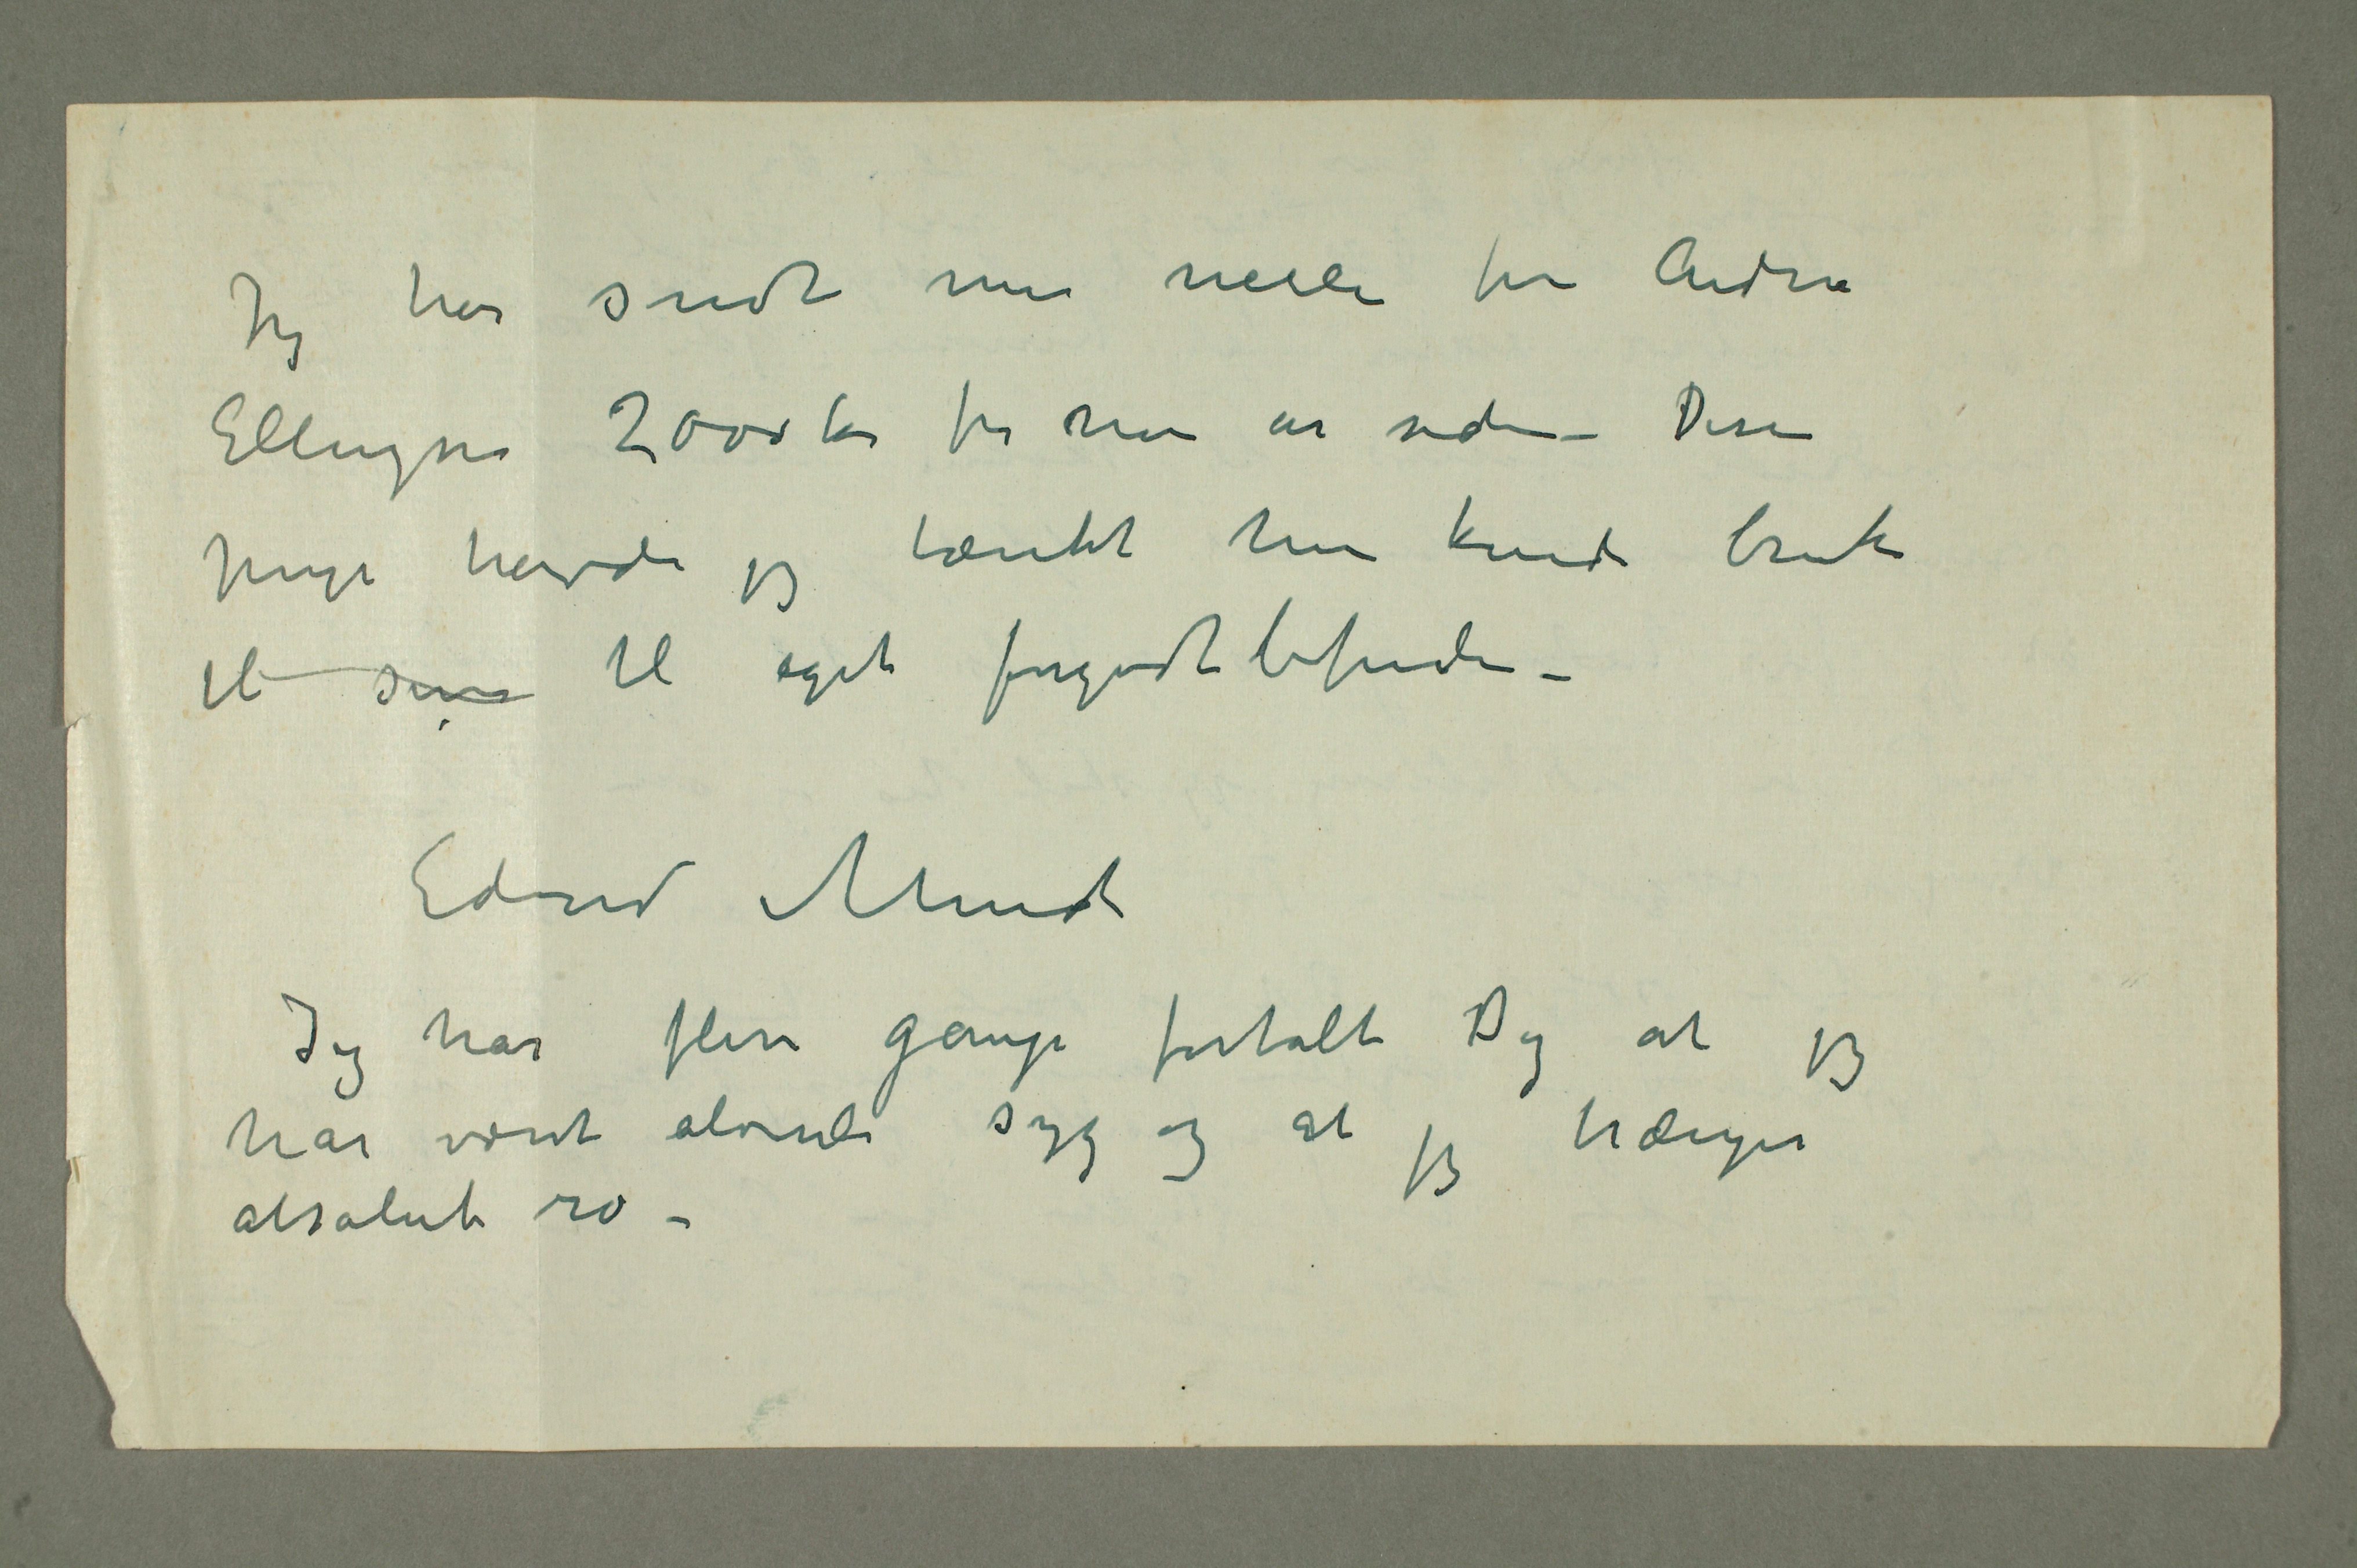 Jeg har sendt min niese fru Andrea
Ellingsen 2000 kr for noen år siden – Disse
penge havde jeg tænkt hun kunde bruke
til sine til eget forgodtbefinde –
Edvard Munch
Jeg har flere gange fortalt Dig at jeg
har været alvorlig syg og at jeg trænger
absolut ro –